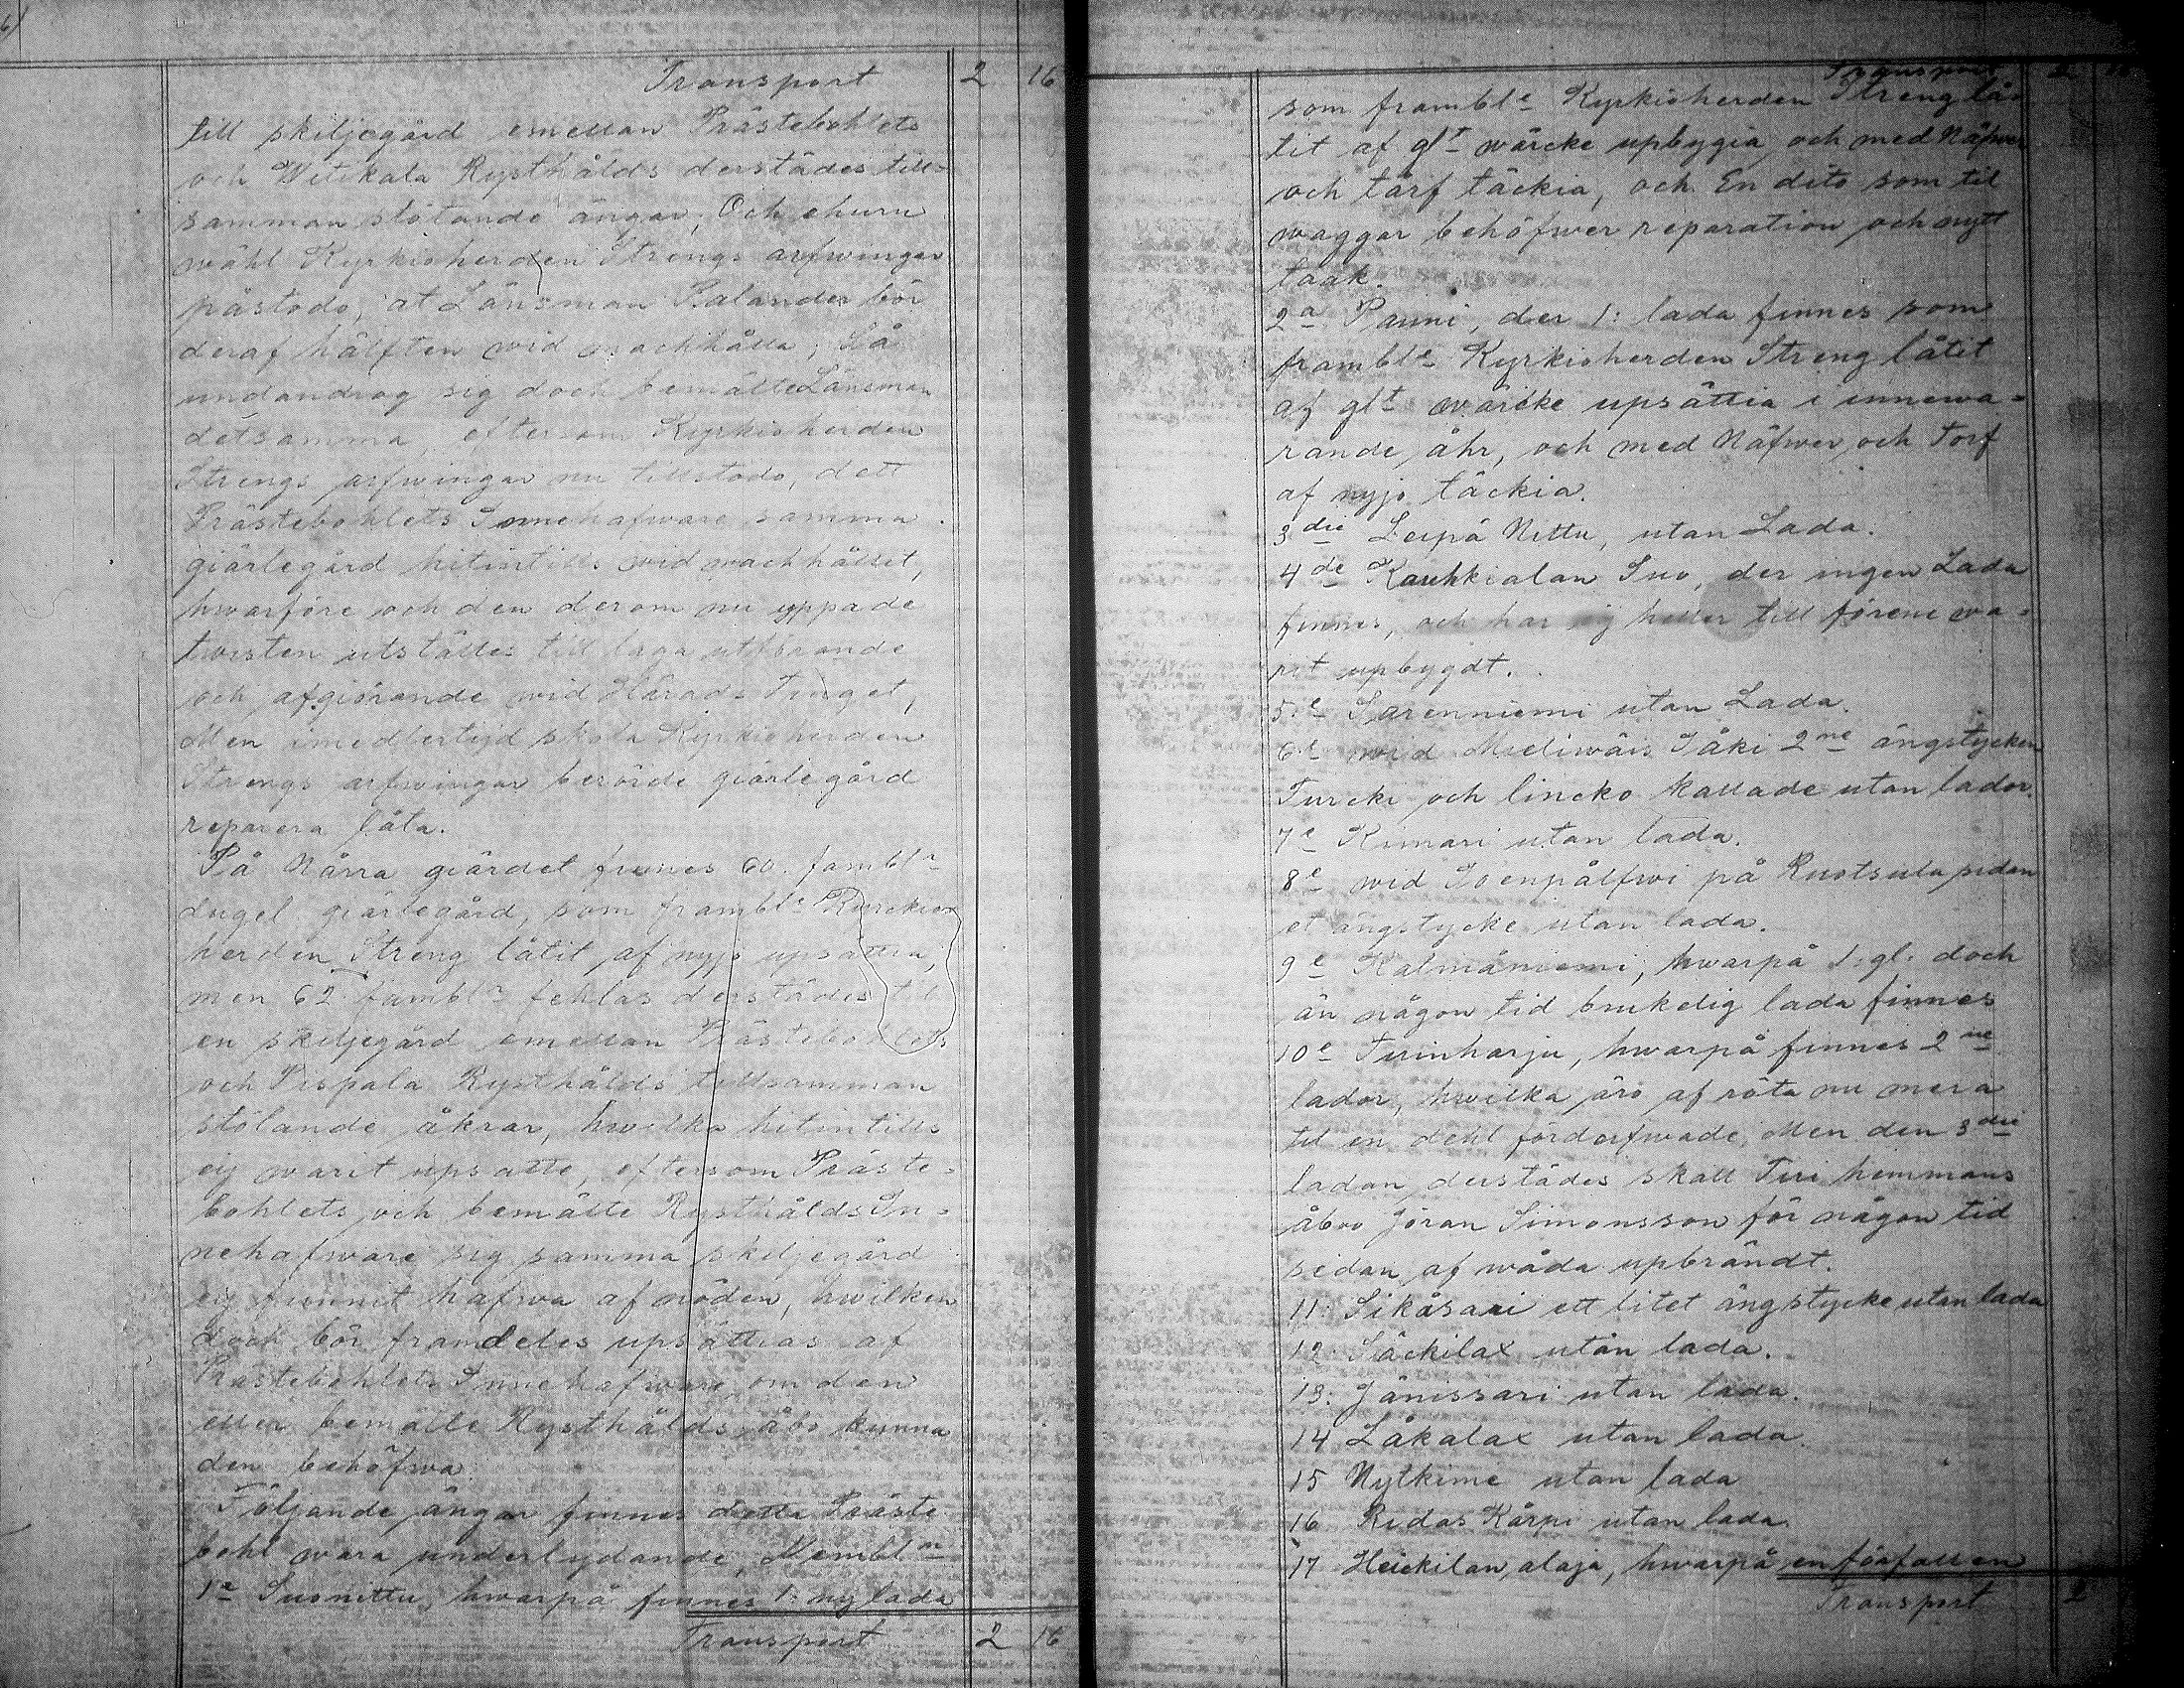 Transport 2 16
till skiljegård emellan Prästebohlets
och Witikala Rysthålds derstädes till=
samman stötande ängar; Och ehuru
wähl Kyrkioherden Strengs arfwingar
påstodo, at Länsman Palander bör
deraf hälften wid machhålla; Så
undandrog sig doch bemälte Länsman
detsamma, eftersom Kyrkioherden
Strengs arfwingar nu tillstodo, dett
Prästebohlets Innehafware samma
giärlegård hitintills wid machhållit,
hwarföre och den derom nu yppade
twisten utställes till laga utförande
och afgiörande wid Härads Tinget,
Men imedlertijd skola Kyrkioherden
Strengs arfwingar berörde giärlegård
reparera låta.
På Närra giärdet finnes 60. fambl:r
dugel. giärlegård, som frambl:e Kyrckio=
herden Streng låtit af nyjo upsättia,
men 62 fambl:r fehlas derstädes til
en skiljegård emellan Prästebohlets
och Pispala Rysthålds tillsamman
stötande åkrar, hwilka hitintills
eij warit upsatte, eftersom Präste=
bohlets och bemälte Rysthålds In=
nehafware sig samma skiljegård
eij funnit hafwa af nöden, hwilken
doch bör framdeles upsättias af
Prästebohlets Innehafware, om den
eller bemälte Rysthålds åbo kunna
den behöfwa.
Följande ängar finnes detta Präste
bohl wara underlydande, Nembl:n
1:a Suonittu, hwarpå finnes 1: ny lada
Transport 2 16
Transport 2 16
som frambl:e Kyrkioherden Streng lå=
tit af gl:t wärcke upbygia och med Näfwer
och tårf täckia, och En dito som til
waggar behöfwer reparation och nytt
taak.
2:a Pauni, der 1: lada finnes som
frambl:e Kyrkioherden Streng låtit
af gl:t wärcke upsättia i innewa=
rande åhr, och med Näfwer och Torf
af nyjo täckia.
3:die Leipä Nittu, utan Lada.
4:de Kauhkialan Suo, der ingen Lada
finnes, och har eij heller till förene wa=
rit upbygdt.
5:e Sarenniemi utan Lada.
6:e wid Meliwäis Jåki 2:ne ängstycken
Turcki och lincko kallade utan lador.
7:e Kimari utan lada.
8:e wid Joenpålfwi på Ruotsula sidan
et ängstycke utan lada.
9:e Kalmäniemi, hwarpå 1: gl: doch
än någon tid brukelig lada finnes
10:e Tuinharju, hwarpå finnes 2:ne
lador, hwilka äro af röta nu mera
til en dehl förderfwade. Men den 3:die
ladan derstädes skall Turi hemmans
åboo Jöran Simonsson för någon tid
sedan af wåda upbrändt.
11: Sikåsaari ett litet ängstycke utan lada
12: Säckilax utan lada.
13: Jänissari utan lada.
14 Låkalax utan lada.
15 Nytkime utan lada
16 Ridas Kärpi utan lada.
17 Heickilan, alaja, hwarpå en förfallen
Transport 2